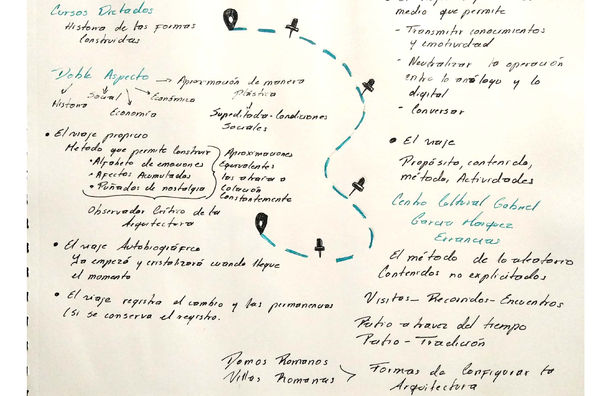 Cursos Dictados
Historia de las Formas
Construidas
Doble Aspecto → Aproximación de manera
Plástica
Historia
Social
Económico
Economía
Supeditada-Condiciones
Sociales
• El viaje propicio
Método que permite construir
• Alfabeto de emociones
• Afectos Acumulados
• Puñados de nostalgia
Aproximaciones
Equivalentes
las
a
Colación
Constantemente
Observador Crítico de la
Arquitectura
• El viaje Autobiográfico
Ya empezó y cristalizará cuando llegue
el momento
• El viaje registra el cambio y las permanencias
(si se conserva el registro.
medio que permite
- Transmitir conocimientos
y emotividad
- Neutralizar la operación
entre lo análogo y lo
digital
- Conversar
• El viaje
Propósito, contenido,
método, Actividades
Centro Cultural Gabriel
García Márquez
Errancias
El método de lo aleatorio
Contenidos no explicitados
Visitas - Recorridos - Encuentros
Patio a través del tiempo
Patio - Tradición
Domos Romanos
Villas Romanas
Formas de Configurar la
Arquitectura